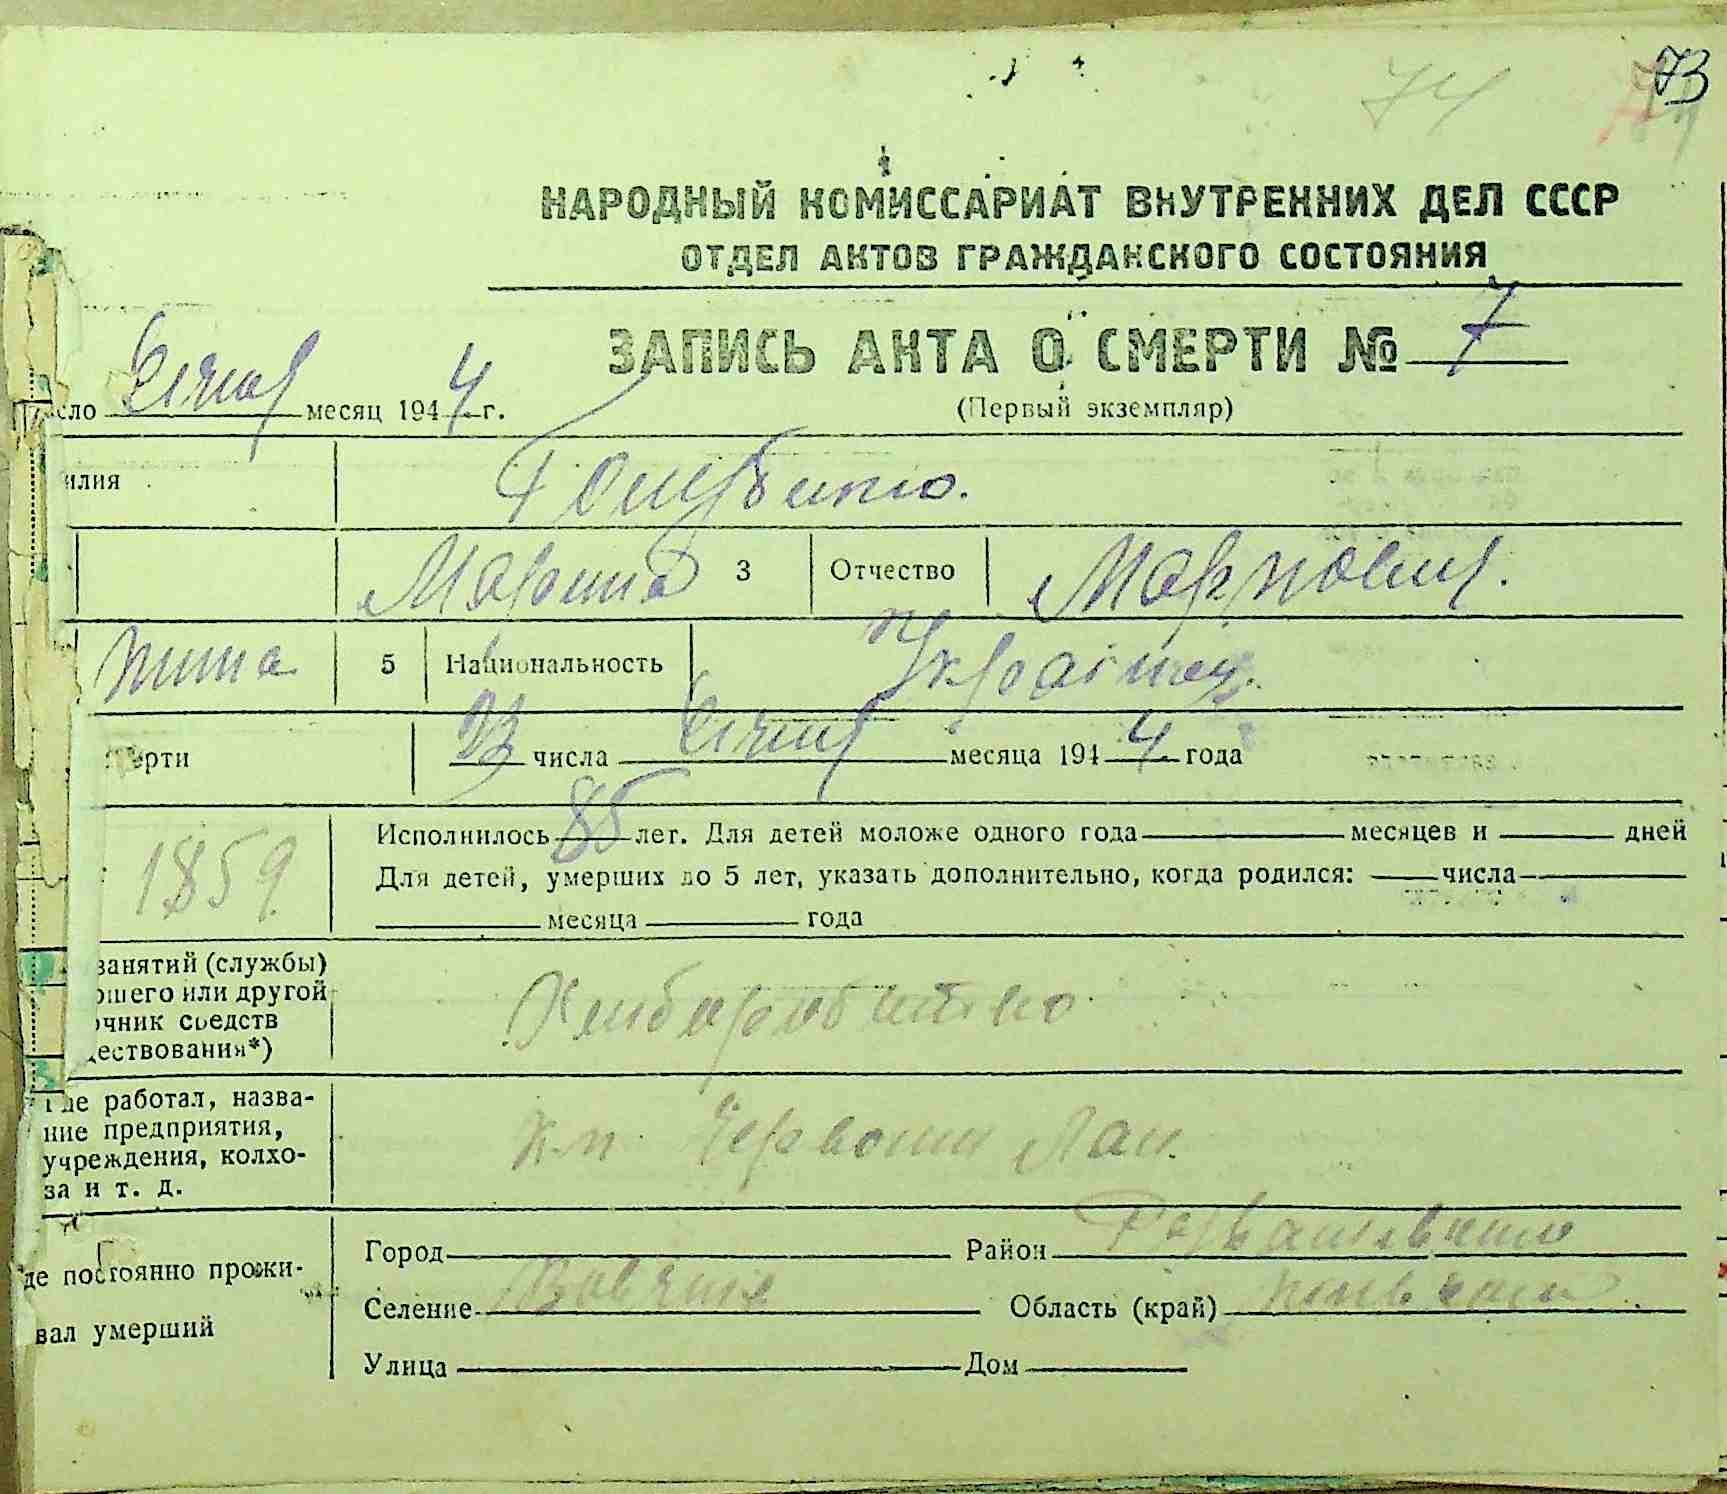 73
74
НАРОДНЫЙ КОМИССАРИАТ ВНУТРЕННИХ ДЕЛ СССР
ОТДЕЛ АКТОВ ГРАЖДАНСКОГО СОСТОЯНИЯ
ЗАПИСЬ АКТА О СМЕРТИ № 7
сло Січня месяц 1944 г.
(Первый экземпляр)
илия
3 Отчество Маркович.
5 Национальность Українец.
ерти 23 числа Січня месяца 1944 года
1859
Исполнилось 85 лет. Для детей моложе одного года месяцев и дней
Для детей, умерших до 5 лет, указать дополнительно, когда родился: числа
месяца года
занятий (службы)
ршего или другой
очник средств
ществования*)
Хліборобство
Где работал, назва-
ние предприятия,
учреждения, колхо-
за и т. д.
Червоний Лан.
де постоянно прожи-
вал умерший
Город Район
Селение Область (край)
Улица Дом